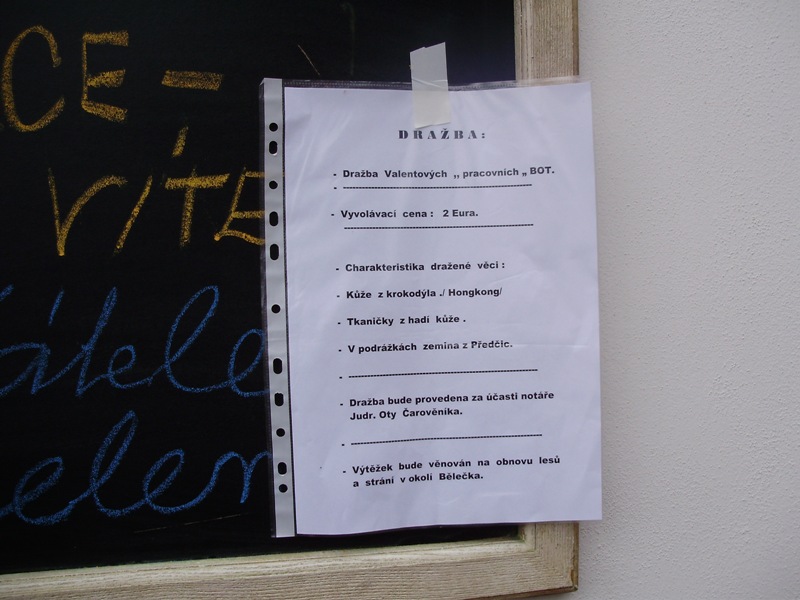 CE -
VÍTE
DRAŽBA:
- Dražba Valentových ,, pracovních „ BOT.
- ------------------------------------------------
- Vyvolávací cena : 2 Eura.
------------------------------------------------
- Charakteristika dražené věci :
- Kůže z krokodýla ./ Hongkong/
- Tkaničky z hadí kůže .
- V podrážkách zemina z Předčic.
- ------------------------------------------------
- Dražba bude provedena za účasti notáře
Judr. Oty Čarověníka.
- ------------------------------------------------
- Výtěžek bude věnován na obnovu lesů
a strání v okolí Bělečka.